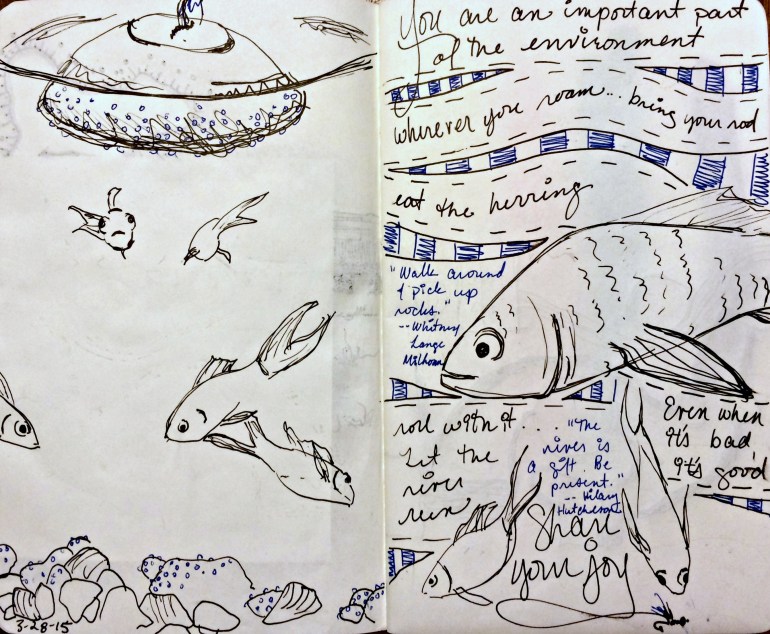 You are an important part
of the environment
wherever you roam... bring your rod
eat the herring
"Walk around
& pick up
rocks."
-- Whitney
Lange
Milhoan
roll with it. . . .
Let the
river
run
"The
river is
a gift. Be
present."
-- Hilary
Hutcheson
Even when
it's bad
it's good
Share
your joy
3-28-15